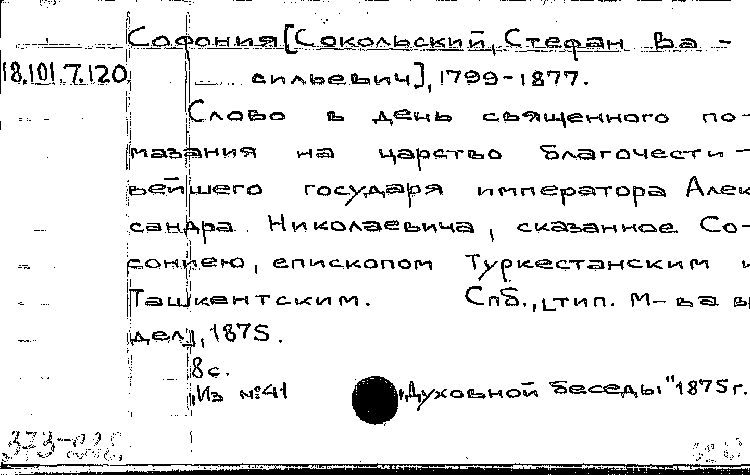 Софония [Сокольский, Стефан Ва-
18.101.7.120 сильевич], 1799-1877.
Слово в день священного по-
мазания на царство благочести-
вейшего государя императора Алек
сандра Николаевича, сказанное Со-
сониею, епископом Туркестанским и
Ташкентским. Спб., [тип. М-ва вн
дел], 1875.
8 с.
Из №41 „Духовной беседы" 1875 г.